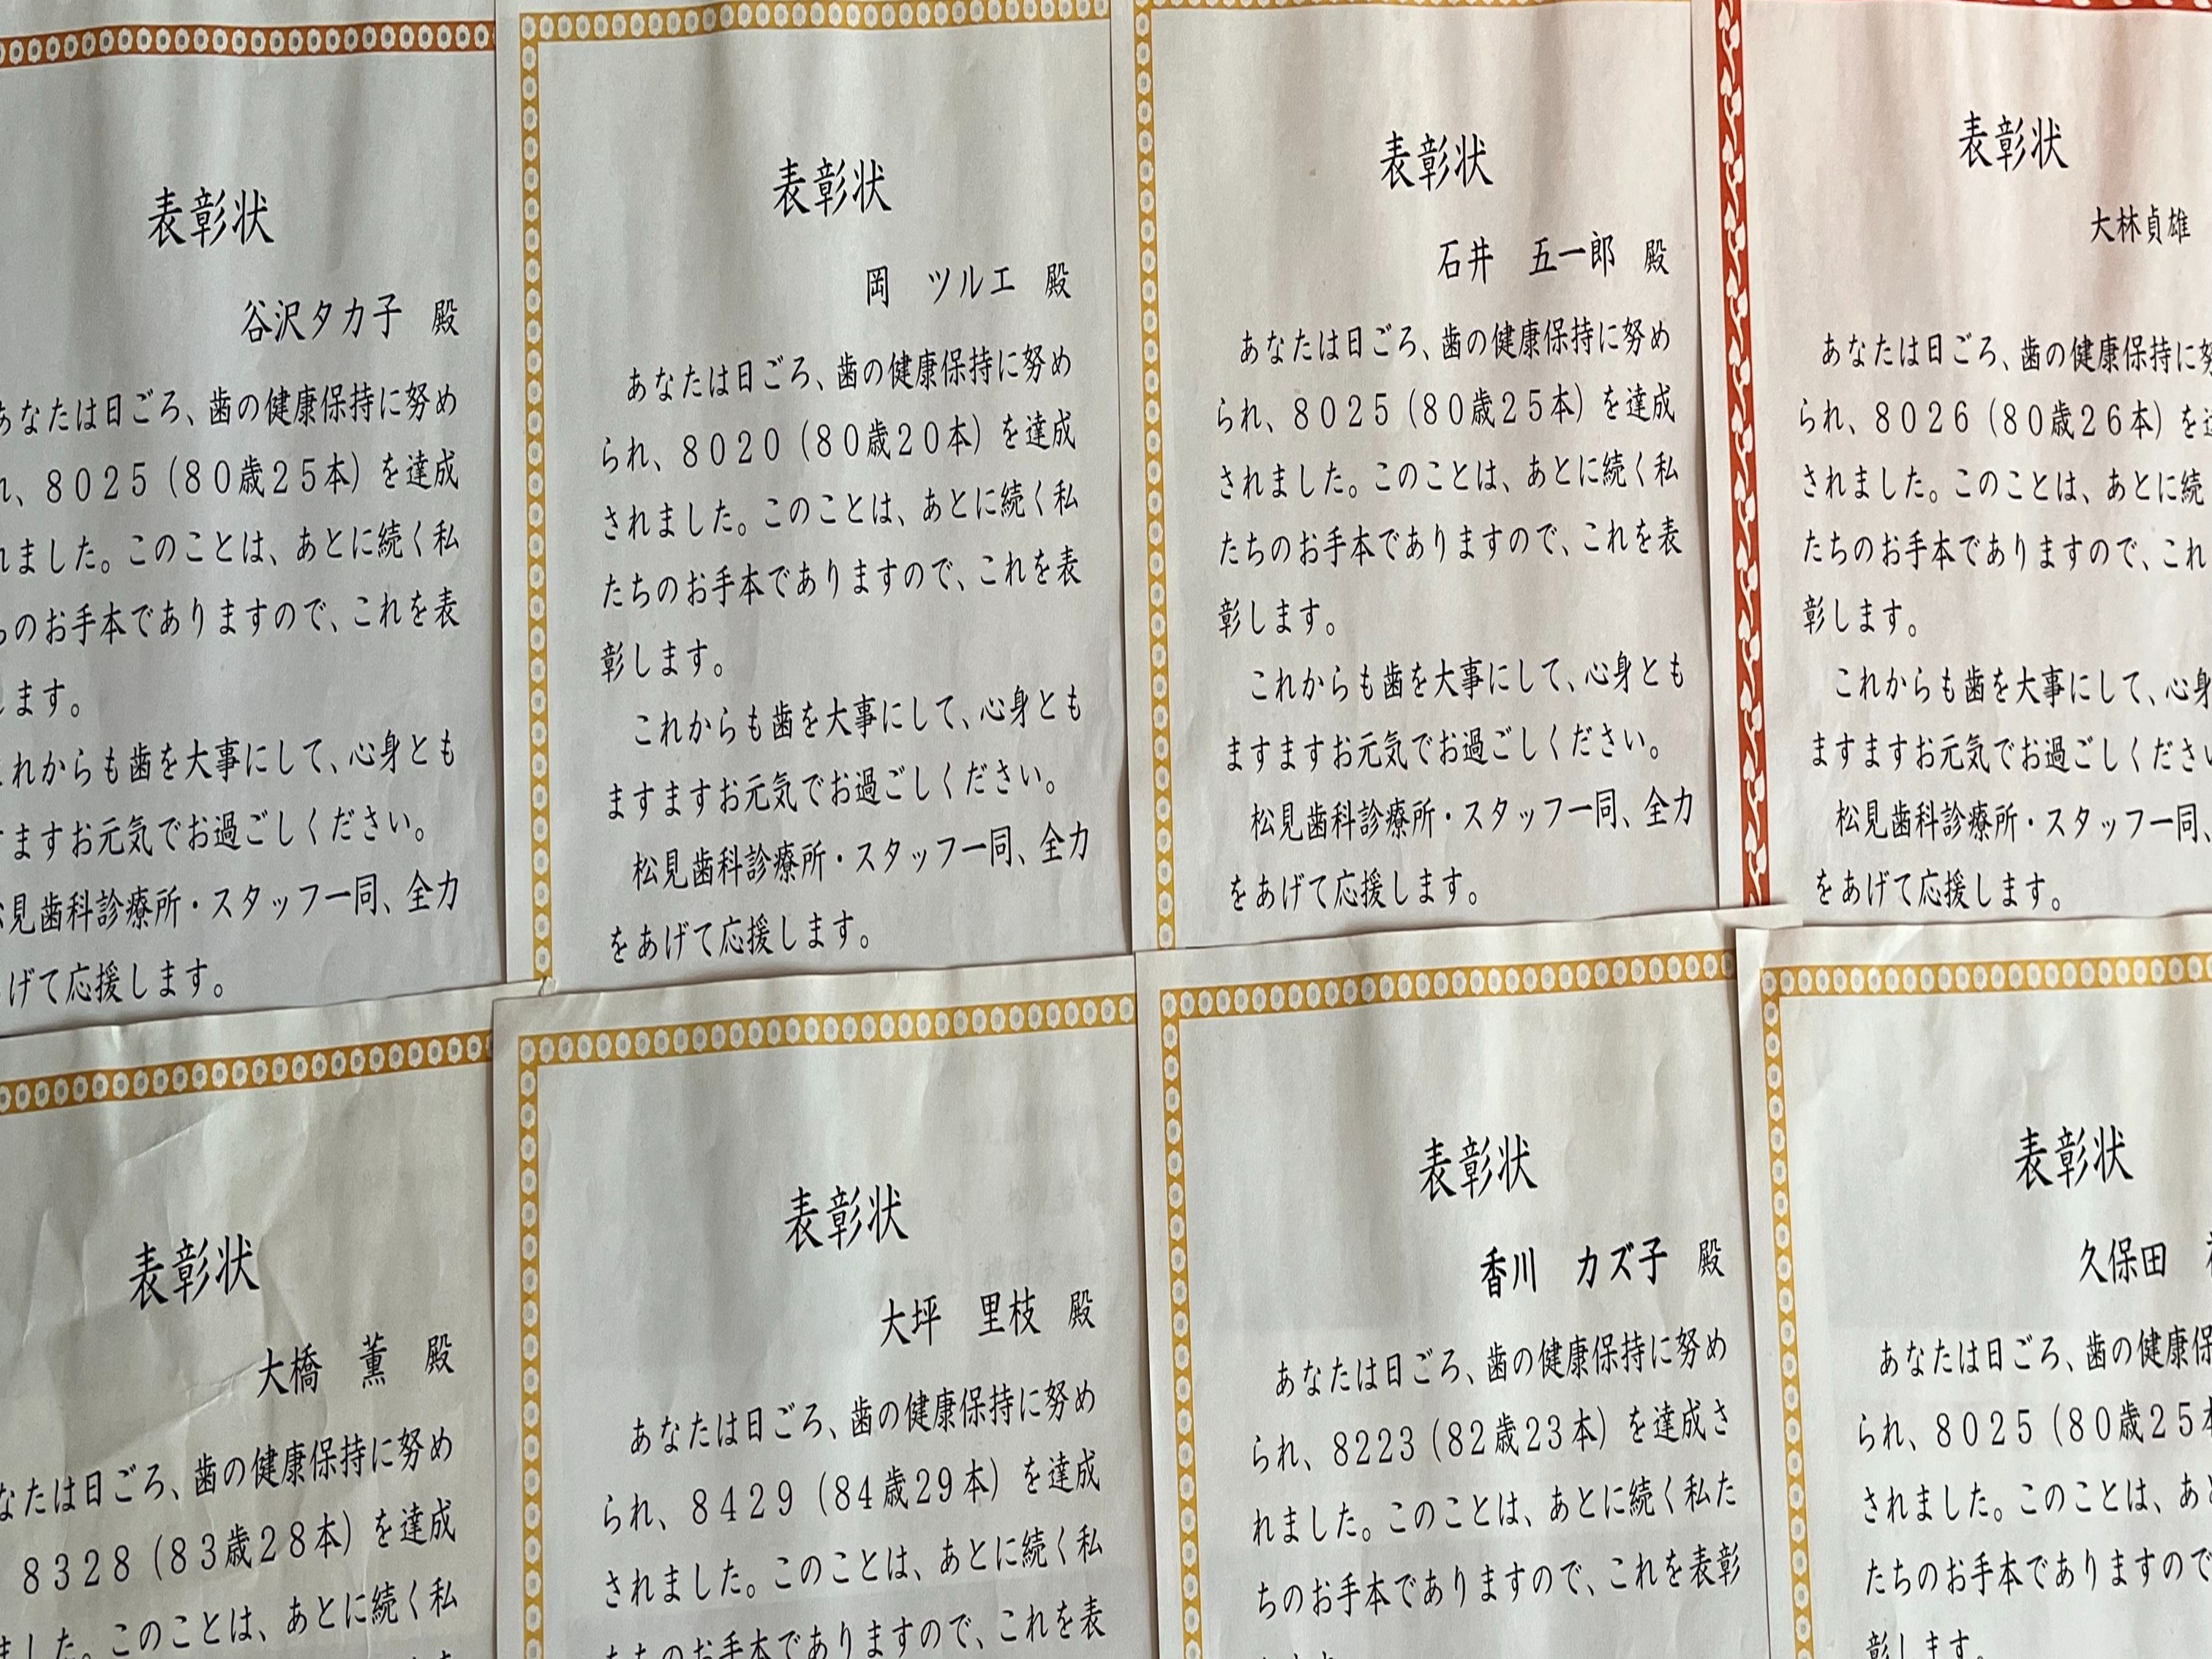 表彰状
谷沢タカ子 殿
あなたは日ごろ、歯の健康保持に努め
れ、8025(80歳25本)を達成
れました。このことは、あとに続く私
のお手本でありますので、これを表
します。
これからも歯を大事にして、心身とも
ますお元気でお過ごしください。
見歯科診療所・スタッフ一同、全力
あげて応援します。
表彰状
岡 ツルエ 殿
あなたは日ごろ、歯の健康保持に努め
られ、8020(80歳20本)を達成
されました。このことは、あとに続く私
たちのお手本でありますので、これを表
彰します。
これからも歯を大事にして、心身とも
ますますお元気でお過ごしください。
松見歯科診療所・スタッフ一同、全力
をあげて応援します。
表彰状
石井 五一郎 殿
あなたは日ごろ、歯の健康保持に努め
られ、8025(80歳25本)を達成
されました。このことは、あとに続く私
たちのお手本でありますので、これを表
彰します。
これからも歯を大事にして、心身とも
ますますお元気でお過ごしください。
松見歯科診療所・スタッフ一同、全力
をあげて応援します。
表彰状
大林貞雄
あなたは日ごろ、歯の健康保持に努
られ、8026(80歳26本)を達
されました。このことは、あとに続
たちのお手本でありますので、これ
彰します。
これからも歯を大事にして、心身
ますますお元気でお過ごしください
松見歯科診療所・スタッフ一同、
をあげて応援します。
表彰状
大橋 薫 殿
なたは日ごろ、歯の健康保持に努め
8328(83歳28本)を達成
ました。このことは、あとに続く私
表彰状
大坪 里枝 殿
あなたは日ごろ、歯の健康保持に努め
られ、8429(84歳29本)を達成
されました。このことは、あとに続く私
たちのお手本でありますので、これを表
表彰状
香川 カズ子 殿
あなたは日ごろ、歯の健康保持に努め
られ、8223(82歳23本)を達成さ
れました。このことは、あとに続く私た
ちのお手本でありますので、これを表彰
表彰状
久保田
あなたは日ごろ、歯の健康保
られ、8025(80歳25本
されました。このことは、あと
たちのお手本でありますので
彰します。